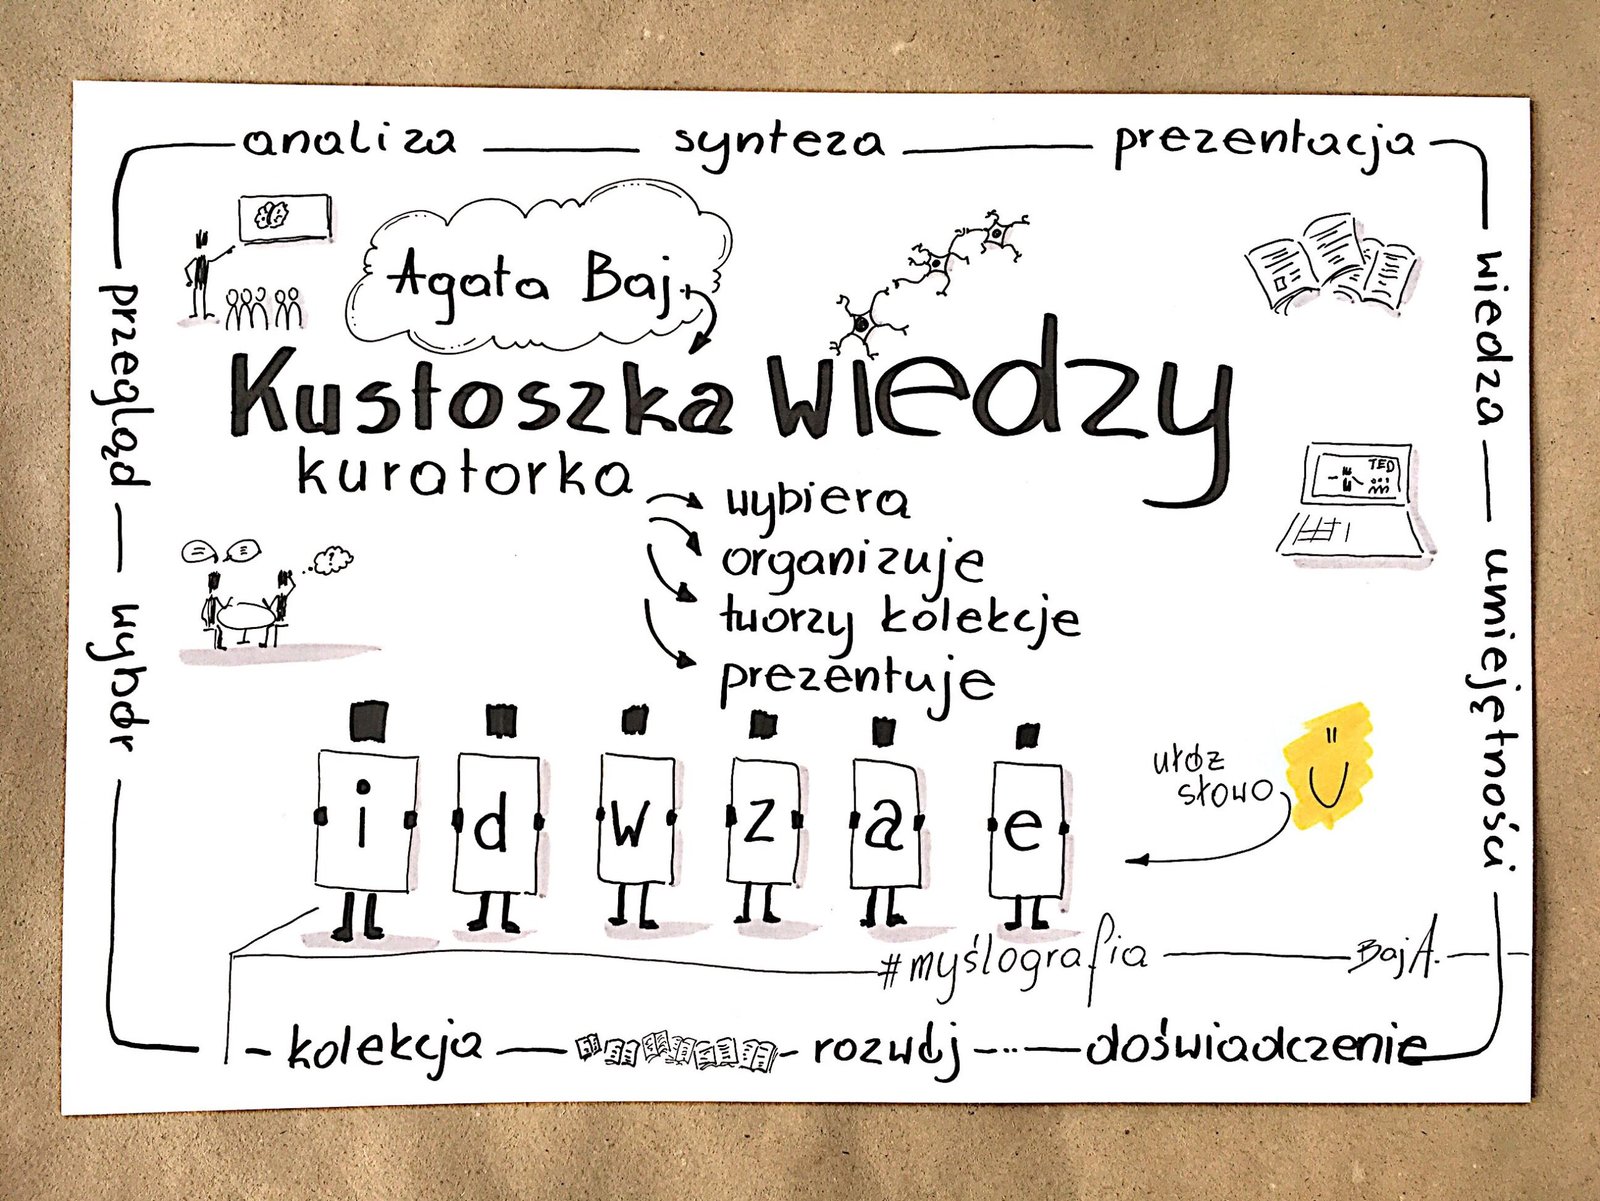 analiza synteza prezentacja
Agata Baj
Kustoszka wiedzy
kuratorka
wybiera
organizuje
tworzy kolekcje
prezentuje
przegląd wybór
wiedza umiejętności
TED
?
i d w z a e
ułóż
słowo
#myślografia Baj A.
kolekcja rozwój doświadczenie